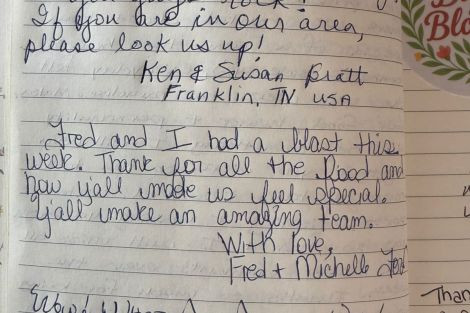 If you are in our area,
please look us up!
Ken & Susan Pratt
Franklin, TN USA
Fred and I had a blast this
week. Thank for all the food and
how y'all made us feel special.
Y'all make an amazing team.
With love,
Fred + Michelle
Than